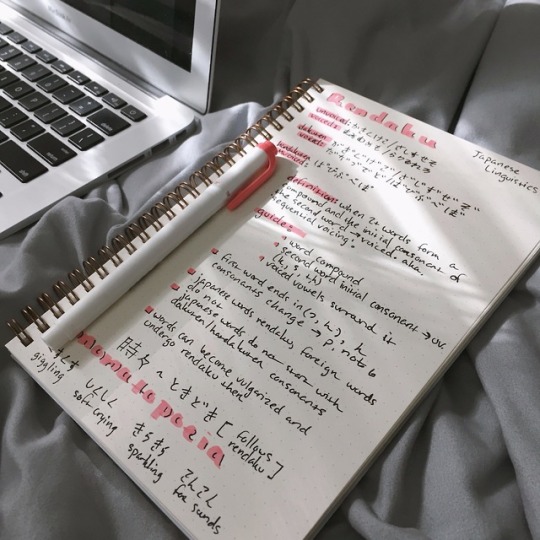 Rendaku
Japanese
Linguistics
unvoiced:
voiced:
dakuten
voiced:
handakuten
unvoiced:
definition: when 2x words form a
compound and the initial consonant of
the second word → voiced. aka
sequential voicing.
guide:
word compound
second word initial consonant → uv.
(k, s, t, h)
voiced vowels surround it
first word ends in (n, h), h
consonants change → p, not b
Japanese words rendaku, foreign words
do not
Japanese words do not start with
dakuten/handakuten consonents
words can become vulgarized and
undergo rendaku then
時々 → ときどき [follows
rendaku]
Onomatopoeia
giggling
しくしく
soft crying
きらきら
sparkling
for sounds